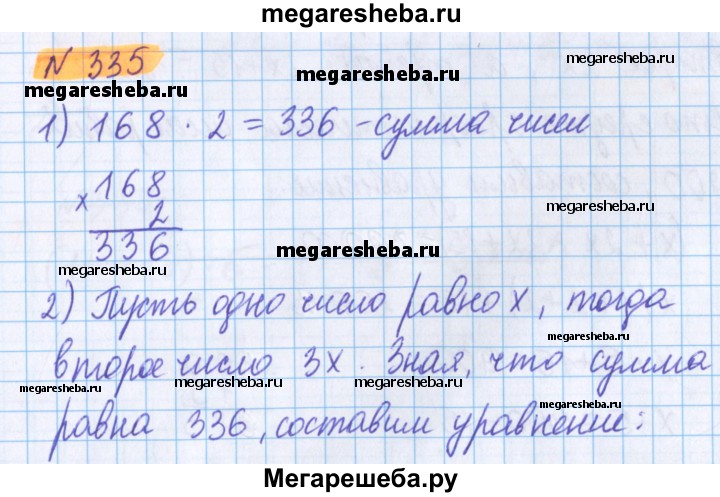 megaresheba.ru
N 335
megaresheba.ru
megaresheba.ru
megaresheba.ru
1) 168 · 2 = 336 - сумма чисел
x 168
2
336
megaresheba.ru
megaresheba.ru
megaresheba.ru
2) Пусть одно число равно x, тогда
megaresheba.ru
второе число 3x. Зная, что сумма
megaresheba.ru
megaresheba.ru
megaresheba.ru
megaresheba.ru
равна 336, составим уравнение:
Мегарешеба.ру